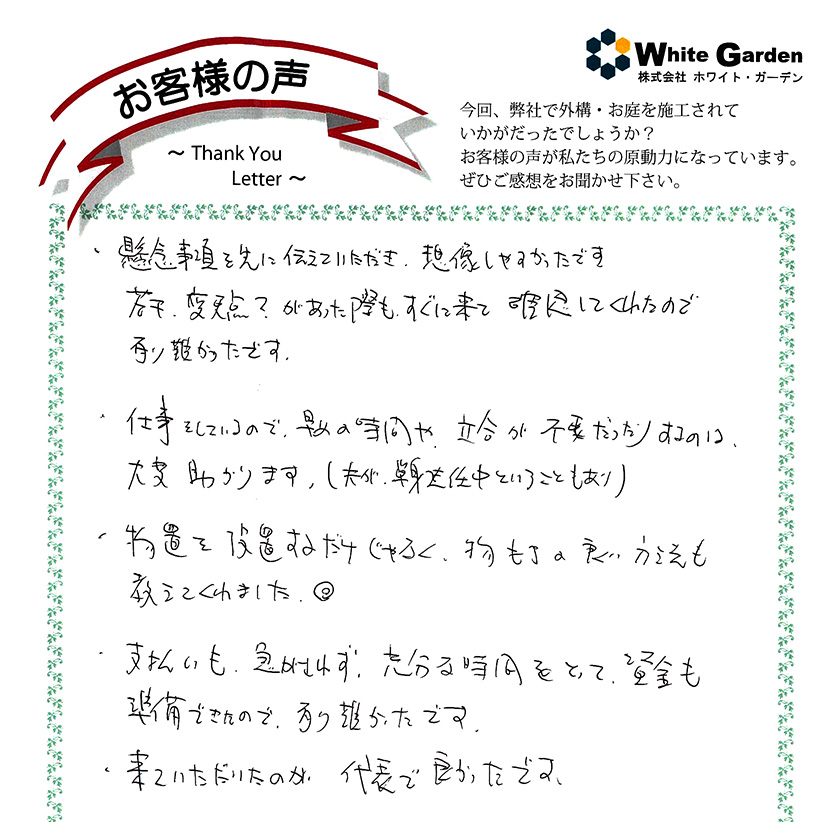 お客様の声
～ Thank You
Letter ～
White Garden
株式会社 ホワイト・ガーデン
今回、弊社で外構・お庭を施工されて
いかがだったでしょうか？
お客様の声が私たちの原動力になっています。
ぜひご感想をお聞かせ下さい。
・懸念事項を先に伝えていただき、想像しやすかったです
若干、変更点？があった際も、すぐに来て 確認してくれたので
有り難かったです。
・仕事をしているので、早めの時間や、立合が不要だったりするのは、
大変助かります。(夫が、単身赴任中ということもあり)
・物置を設置するだけじゃなく、物もちの良い方法も
教えてくれました。◎
・支払いも、急がせず、充分な時間をとって、資金も
準備できたので、有り難かったです。
・来ていただいたのが 代表で良かったです。